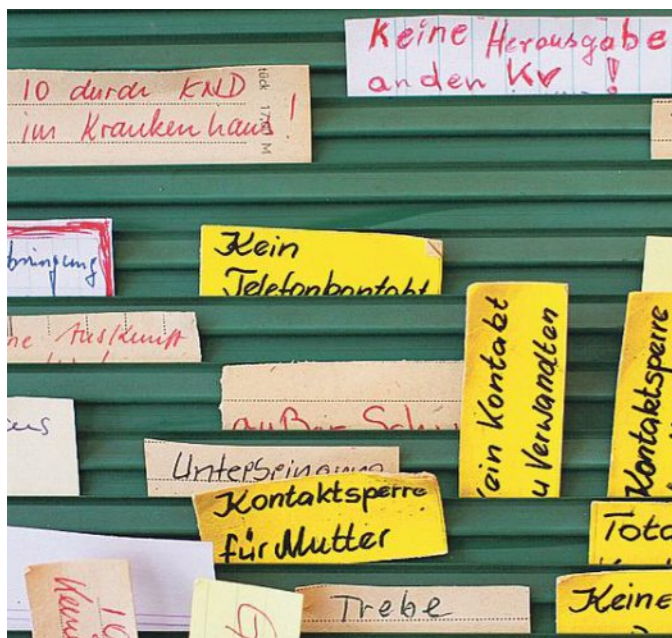 Keine Herausgabe
an den KV !
10 durch KND
im Krankenhaus!
tück 17/81 M
Kein
Telefonkontakt
bringung
ne Auskunft
Kein Kontakt
u Verwandten
Kontaktsperre
außer Schu
Unterbringung
Kontaktsperre
für Mutter
Tota
Trebe
Keine